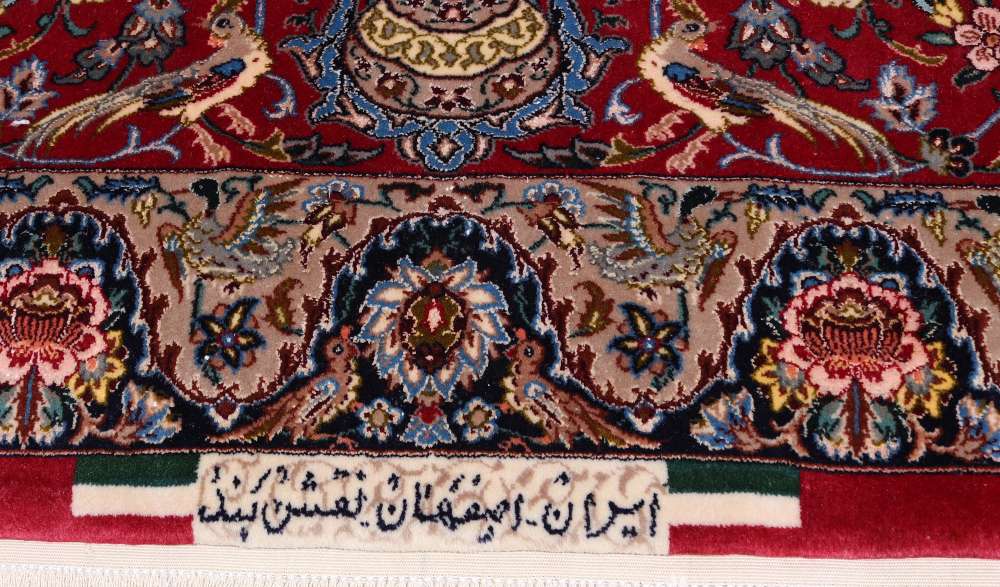 ایران - اصفهان نقشش بند